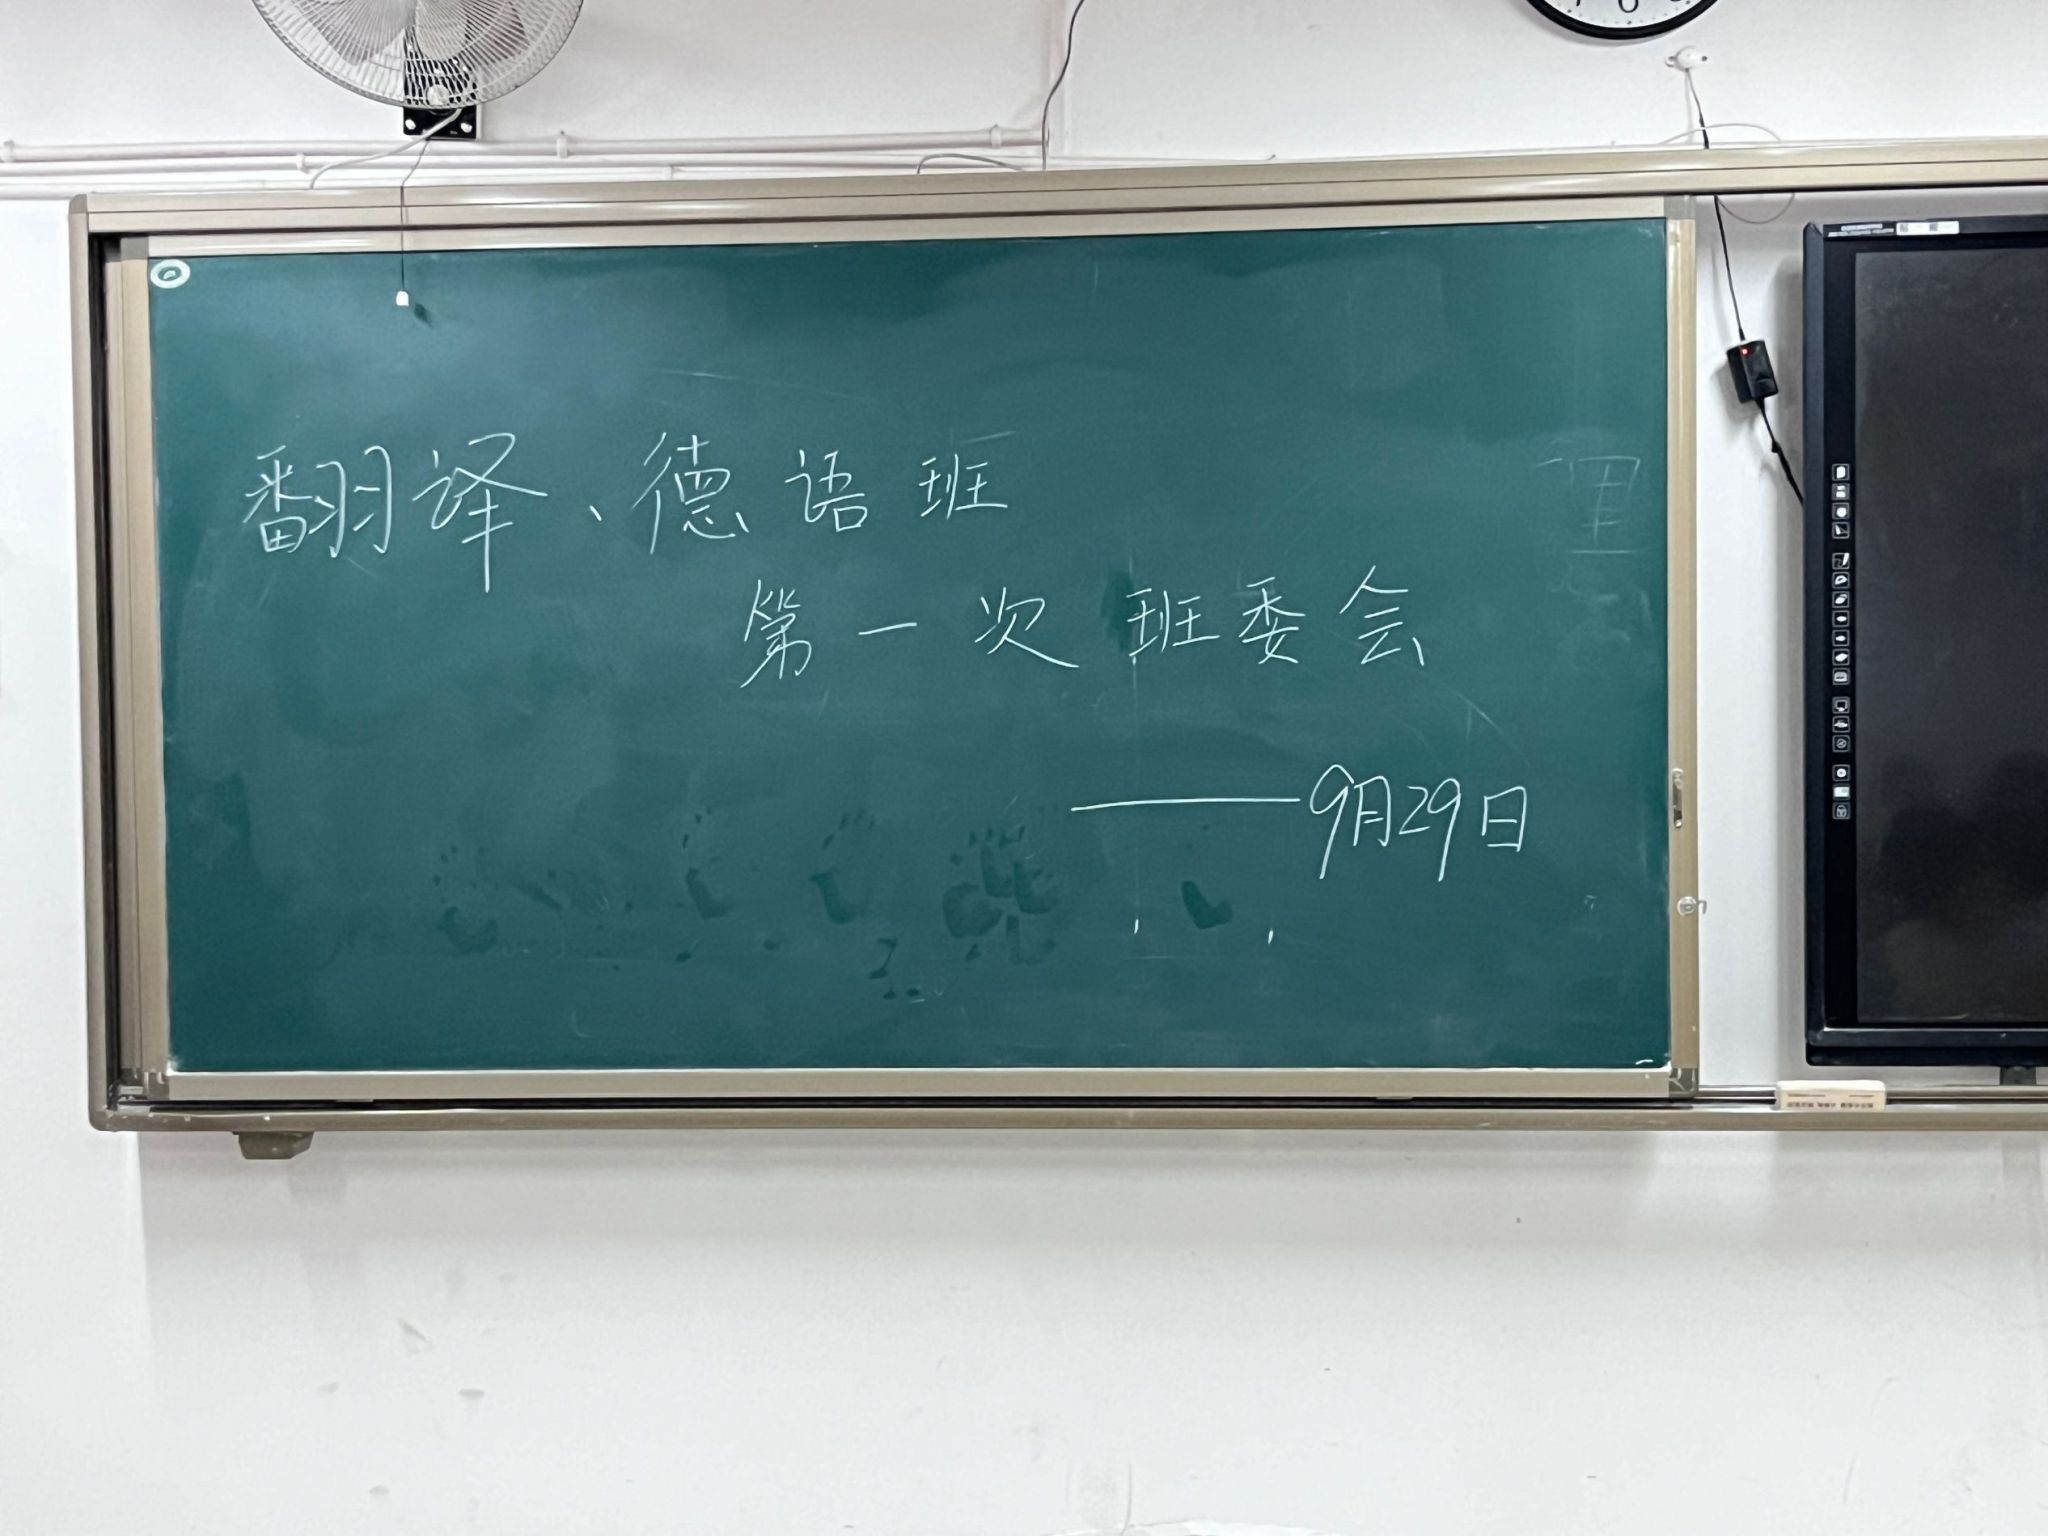 翻译、德语班
第一次班委会
——9月29日
6